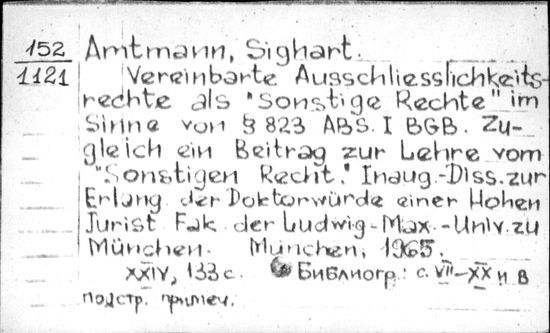 152
1121
Amtmann, Sighart.
Vereinbarte Ausschliesslichkeits-
rechte als "Sonstige Rechte" im
Sinne von § 823 ABS. I BGB. Zu-
gleich ein Beitrag zur Lehre vom
"Sonstigen Recht." Inaug.-Diss. zur
Erlang. der Doktorwürde einer Hohen
Jurist. Fak. der Ludwig-Max.-Univ. zu
München. München, 1965.
XXIV, 133 c. Библиогр.: с. VII-XX и в
подстр. примеч.